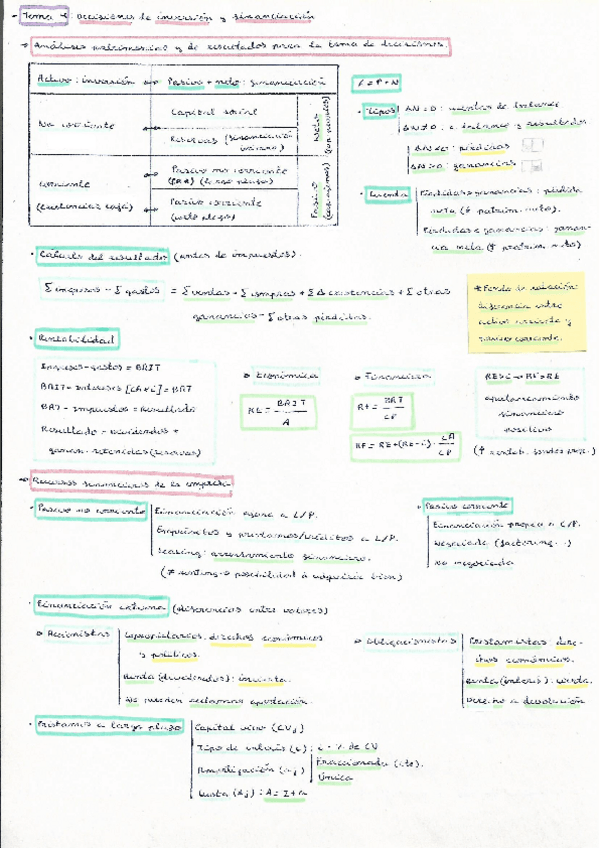 Tema : Decisiones de inversión y financiación
Análisis patrimonial y de resultados para la toma de decisiones.
Activo: inversión Pasivo + neto: financiación
No corriente
Capital social
Reservas (financiación
Neto
Corriente
(existencias, caja)
Pasivo no corriente
(largo plazo)
Pasivo corriente
(corto plazo)
Pasivo
A = P + N
Tipos
ΔN = 0:
ΔN ≠ 0: balance y resultados
pérdidas
ΔN>0: ganancias
Pérdidas > ganancias: pérdida
neta (↓ patrim. neto).
Pérdidas < ganancias: ganan-
cia neta (↑ patrim. neto)
Cálculo del resultado (antes de impuestos).
Σ ingresos - Σ gastos = Σ ventas - Σ compras + Σ Δ existencias + Σ otras
ganancias - Σ otras pérdidas.
* Fondo de rotación:
diferencia entre
activo corriente y
pasivo corriente.
Rentabilidad
Ingresos - gastos = BAIT
BAIT - Intereses = BAT
BAT - Impuestos = Resultado
Resultado = dividendos +
ganan. retenidas (reservas)
Económica
RE = BAIT / A
Financiera
RF = BAT / CP
RF = RE + (RE - i) · CA / CP
RE > i → RF > RE
apalancamiento
financiero
positivo
Recursos financieros de la empresa
Pasivo no corriente
Financiación ajena a L/P.
Empréstitos y préstamos/créditos a L/P.
Leasing: arrendamiento financiero.
(≠ renting → posibilidad a adquirir bien)
Pasivo corriente
Financiación propia a C/P.
Negociada (factoring...)
No negociada
Financiación externa (diferencias entre valores)
Accionistas
Copropietarios, derechos económicos
y políticos.
Renta (dividendos): incierta.
No pueden reclamar aportación.
Obligacionistas
Prestamistas, dere-
chos económicos.
Renta (interés): cierta.
Derecho a devolución
Préstamos a largo plazo
Capital vivo (CVj)
Tipo de interés (i): i = % de CV
Amortización (Aj)
Fraccionada (cte).
Única
Cuota (aj): A = I + m